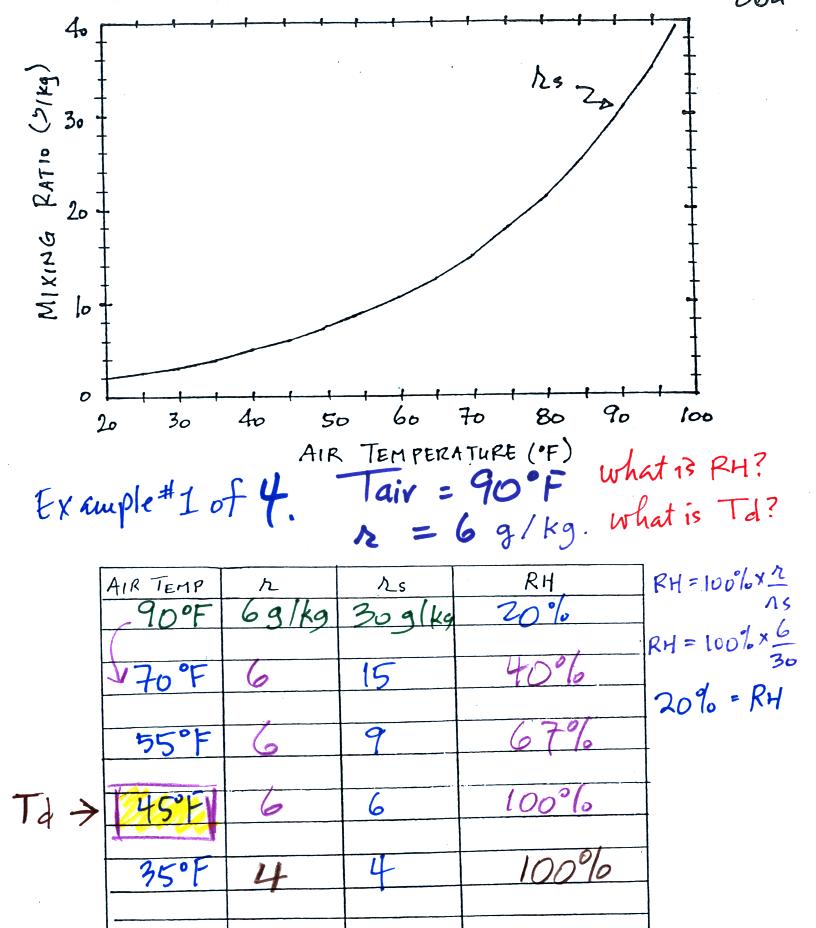 40
30
20
10
0
MIXING RATIO (g/kg)
rs
20 30 40 50 60 70 80 90 100
AIR TEMPERATURE (°F)
Example #1 of 4. Tair = 90°F what is RH?
r = 6 g/kg. what is Td?
AIR TEMP r rs RH
90°F 6g/kg 30g/kg 20%
70°F 6 15 40%
55°F 6 9 67%
Td → 45°F 6 6 100%
35°F 4 4 100%
RH = 100% x r/rs
RH = 100% x 6/30
20% = RH